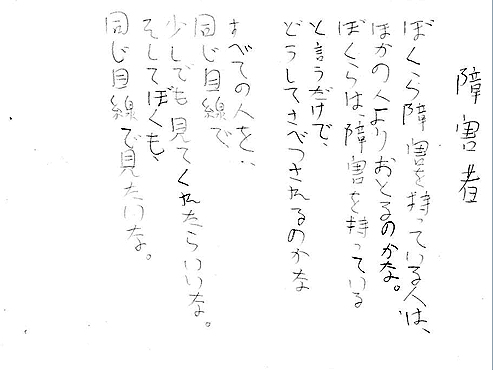 障害者
ぼくら障害を持っている人は、
ほかの人よりおとるのかな。
ぼくらは、障害を持っている
と言うだけで、
どうしてさべつされるのかな
すべての人を‥
同じ目線で、
少しでも見てくれたらいいな。
そしてぼくも、
同じ目線で見たいな。